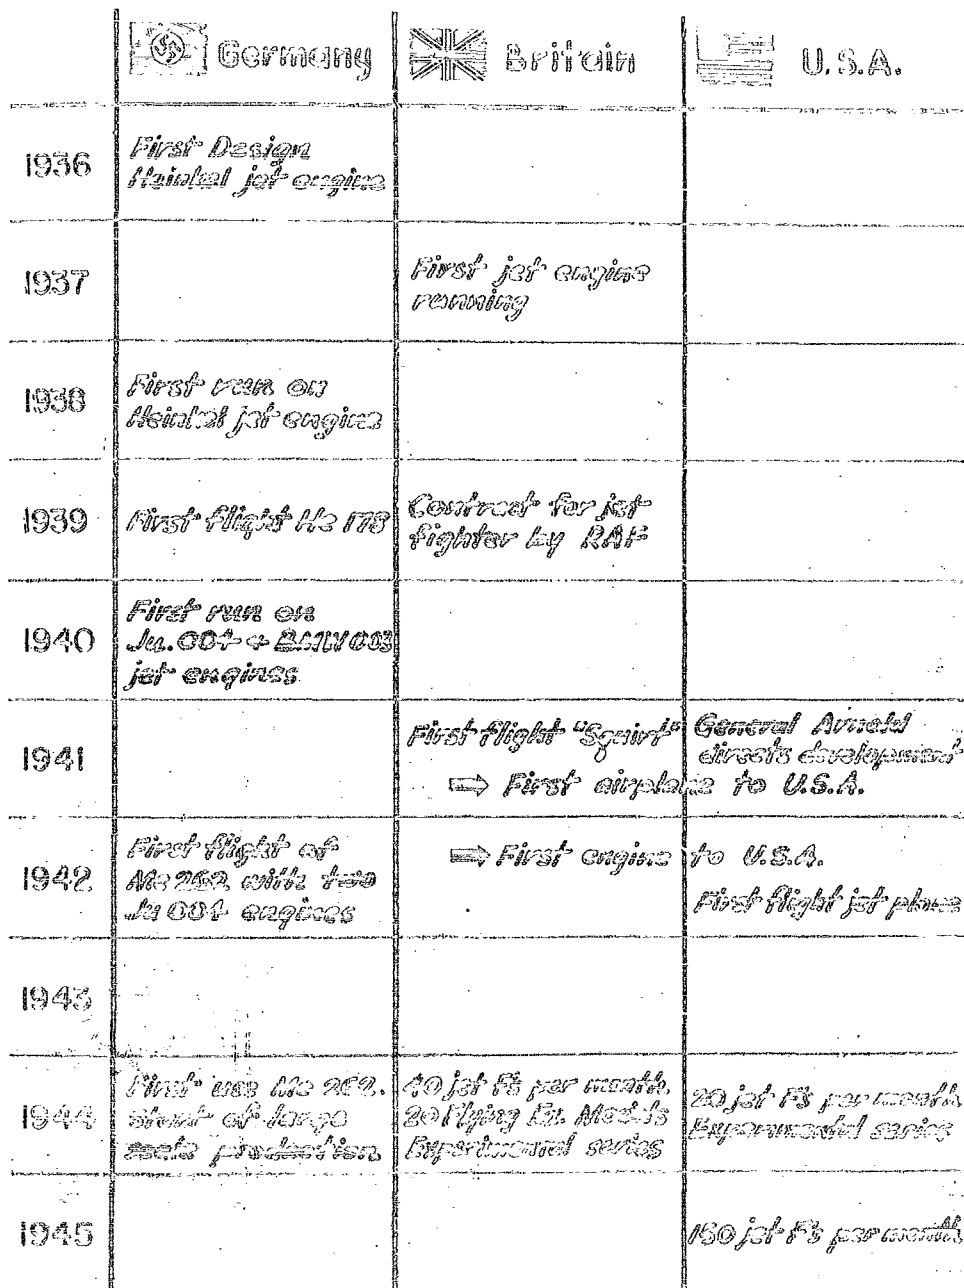 Germany Britain U.S.A.
1936
First Design
Heinkel jet engine
1937
First jet engine
running
1938
First run on
Heinkel jet engine
1939
First flight He 178
Contract for jet
fighter by RAF
1940
First run on
Ju.004 + BMW 003
jet engines
1941
First flight "Squirt"
General Arnold
directs development
⇨ First airplane to U.S.A.
1942
First flight of
Me 262 with two
Ju 004 engines
⇨ First engine to U.S.A.
First flight jet plane
1943
1944
First use Me 262.
start of large
scale production
40 jet F's per month
20 Flying
Experimental series
20 jet F's per month
Experimental series
1945
jet F's per month